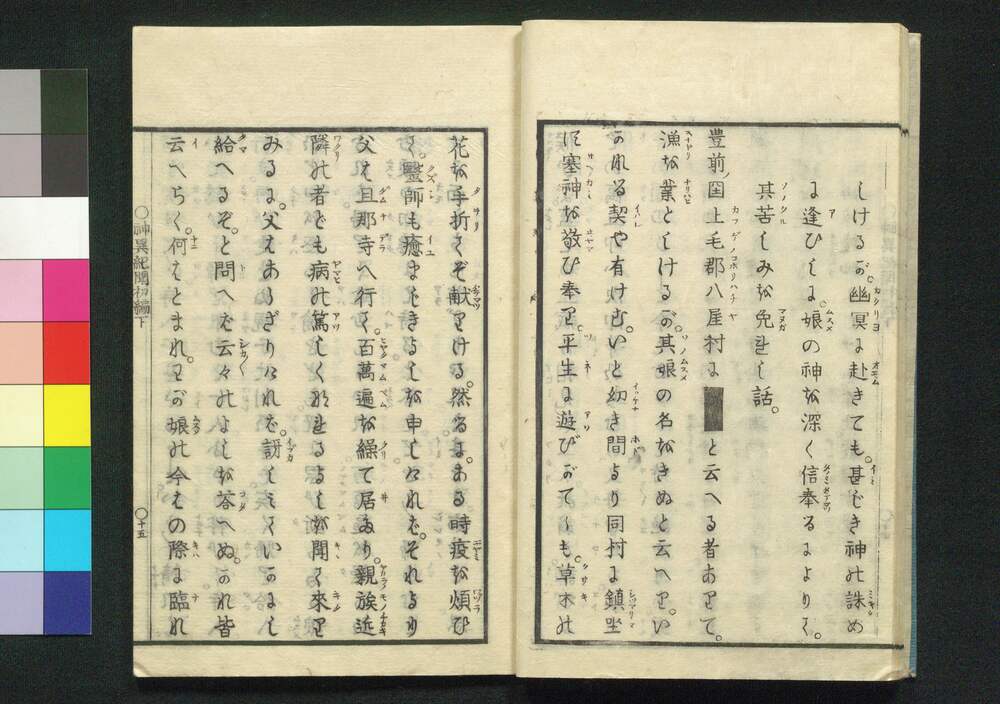 しけるが。幽冥に赴きても。甚じき神の誅め
に逢ひしに。娘の神を深く信奉るによりて。
其苦しみを免れし話。
豊前ノ国上毛郡八屋村に と云へる者ありて。
漁を業としけるが。其娘の名をきぬと云へり。い
かなる契や有けむ。いと幼き間より同村に鎮坐
に塞神を敬ひ奉り。平生に遊びがてらも。草木の
花を手折てぞ献りける。然るに。ある時疫を煩ひ
て。醫師も癒ましきよしを申しければ。それより
父は旦那寺へ行て。百萬遍を繰て居たり。親族近
隣の者ども病の篤しくなれるよしを聞て來り
みるに。父はあらざりければ。訝しみていかにし
給へるぞ。と問へば云々のよしを答へぬ。かれ皆
云へらく。何はとまれ。わが娘の今はの際に臨れ
〇神異紀聞初編下
〇十五